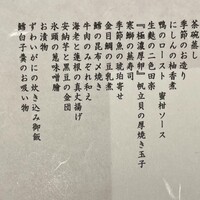 茶碗蒸し
季節のお造り
にしんの柚香煮
鴨のロースト　蜜柑ソース
生麩の二色田楽
『極濃厚卵』帆立貝の厚焼き玉子
寒鰤の蕪寿司
季節魚の琥珀寄せ
金目鯛の豆乳煮
鱈の昆布〆焼き
牛肉のみぞれ和え
海老と蓮根の真丈揚げ
安納芋と黒豆の金団
氷頭の篦味噌膾
お漬物
ずわいがにの炊き込み御飯
鱈白子羹のお吸い物